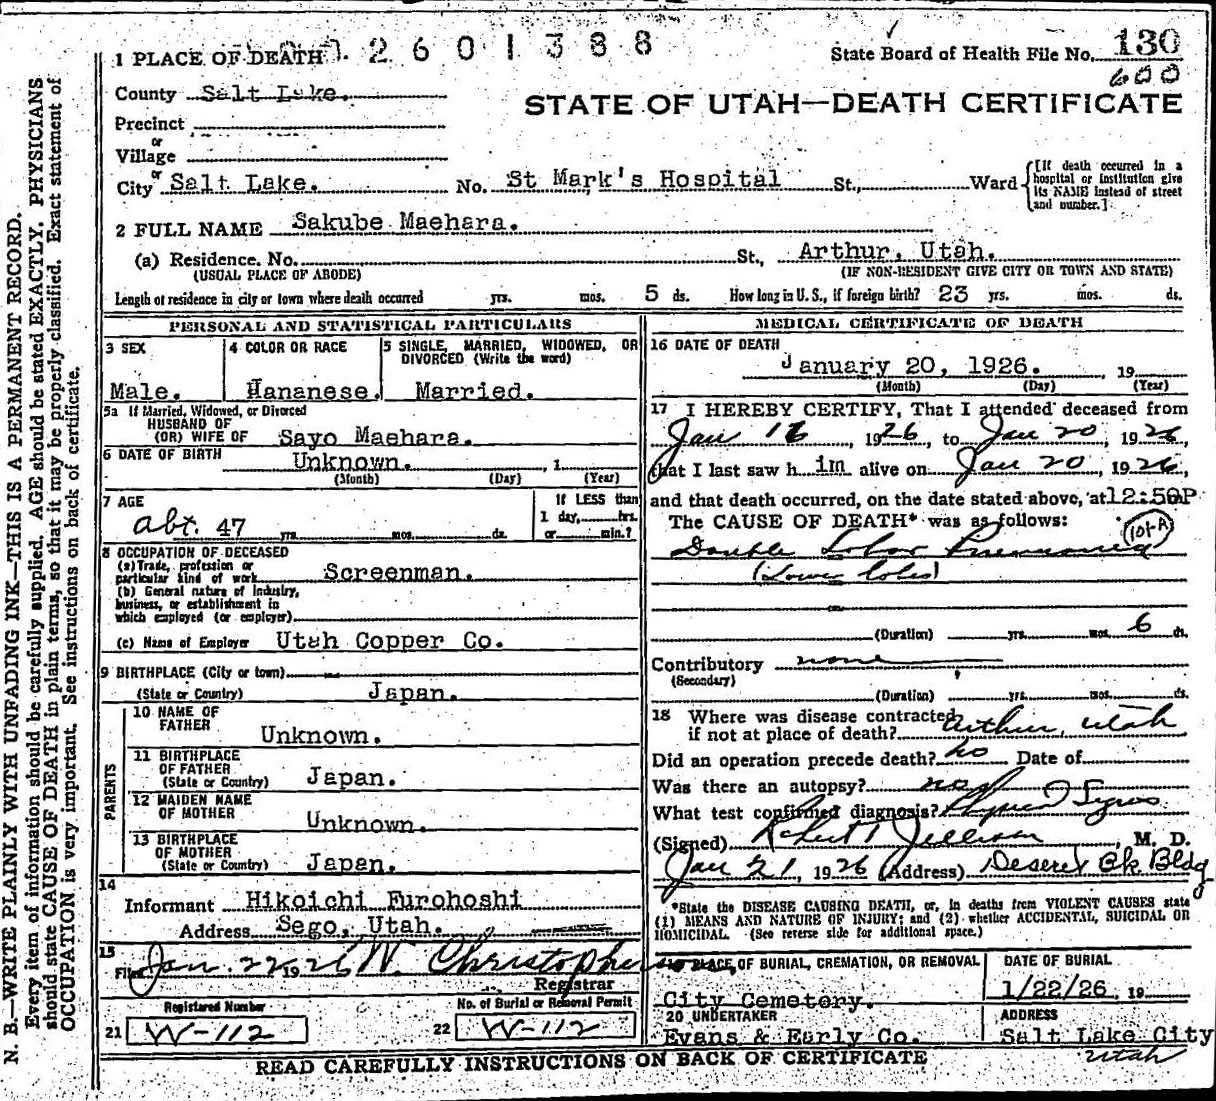 1 PLACE OF DEATH 2601388
State Board of Health File No. 130
600
County Salt Lake.
STATE OF UTAH—DEATH CERTIFICATE
Precinct
or
Village
or
City Salt Lake. No. St Mark's Hospital St., Ward
[If death occurred in a
hospital or institution give
its NAME instead of street
and number.]
2 FULL NAME Sakube Maehara.
(a) Residence. No. St., Arthur, Utah.
(USUAL PLACE OF ABODE) (IF NON-RESIDENT GIVE CITY OR TOWN AND STATE)
Length of residence in city or town where death occurred yrs. mos. 5 ds. How long in U. S., if foreign birth? 23 yrs. mos. ds.
PERSONAL AND STATISTICAL PARTICULARS
3 SEX
Male.
4 COLOR OR RACE
Hananese.
5 SINGLE, MARRIED, WIDOWED, OR
DIVORCED (Write the word)
Married.
5a If Married, Widowed, or Divorced
HUSBAND OF
(OR) WIFE OF Sayo Maehara.
6 DATE OF BIRTH Unknown. , 1
(Month) (Day) (Year)
7 AGE
abt. 47 yrs. mos. ds.
If LESS than
1 day, hrs.
or min.?
8 OCCUPATION OF DECEASED
(a) Trade, profession or
particular kind of work Screenman.
(b) General nature of Industry,
business, or establishment in
which employed (or employer)
(c) Name of Employer Utah Copper Co.
9 BIRTHPLACE (City or town)
(State or Country) Japan.
PARENTS
10 NAME OF
FATHER Unknown.
11 BIRTHPLACE
OF FATHER
(State or Country) Japan.
12 MAIDEN NAME
OF MOTHER Unknown.
13 BIRTHPLACE
OF MOTHER
(State or Country) Japan.
14
Informant Hikoichi Furohoshi
Address Sego, Utah.
15
Filed Jan. 22 1926 W. Christopher
Registrar
Registered Number
21 W-112
No. of Burial or Removal Permit
22 W-112
MEDICAL CERTIFICATE OF DEATH
16 DATE OF DEATH
January 20, 1926. 19
(Month) (Day) (Year)
17 I HEREBY CERTIFY, That I attended deceased from
Jan 16, 1926, to Jan 20, 1926,
that I last saw him alive on Jan 20, 1926,
and that death occurred, on the date stated above, at 12:50P
The CAUSE OF DEATH* was as follows:
101-A
Double Lobar Pneumonia
(Lower lobes)
(Duration) yrs. mos. 6 ds.
Contributory none
(Secondary)
(Duration) yrs. mos. ds.
18 Where was disease contracted
if not at place of death? Arthur, Utah
Did an operation precede death? no Date of
Was there an autopsy? no
What test confirmed diagnosis?
(Signed) Robert T Jellison, M. D.
Jan 21, 1926 (Address) Deseret Bk. Bldg
*State the DISEASE CAUSING DEATH, or, in deaths from VIOLENT CAUSES state
(1) MEANS AND NATURE OF INJURY; and (2) whether ACCIDENTAL, SUICIDAL OR
HOMICIDAL. (See reverse side for additional space.)
PLACE OF BURIAL, CREMATION, OR REMOVAL
City Cemetery.
DATE OF BURIAL
1/22/26 19
20 UNDERTAKER
Evans & Early Co.
ADDRESS
Salt Lake City
Utah
READ CAREFULLY INSTRUCTIONS ON BACK OF CERTIFICATE
N. B.—WRITE PLAINLY WITH UNFADING INK—THIS IS A PERMANENT RECORD.
Every item of information should be carefully supplied. AGE should be stated EXACTLY. PHYSICIANS
should state CAUSE OF DEATH in plain terms, so that it may be properly classified. Exact statement of
OCCUPATION is very important. See instructions on back of certificate.